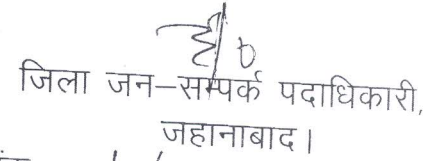 जिला जन–सम्पर्क पदाधिकारी,
जहानाबाद।